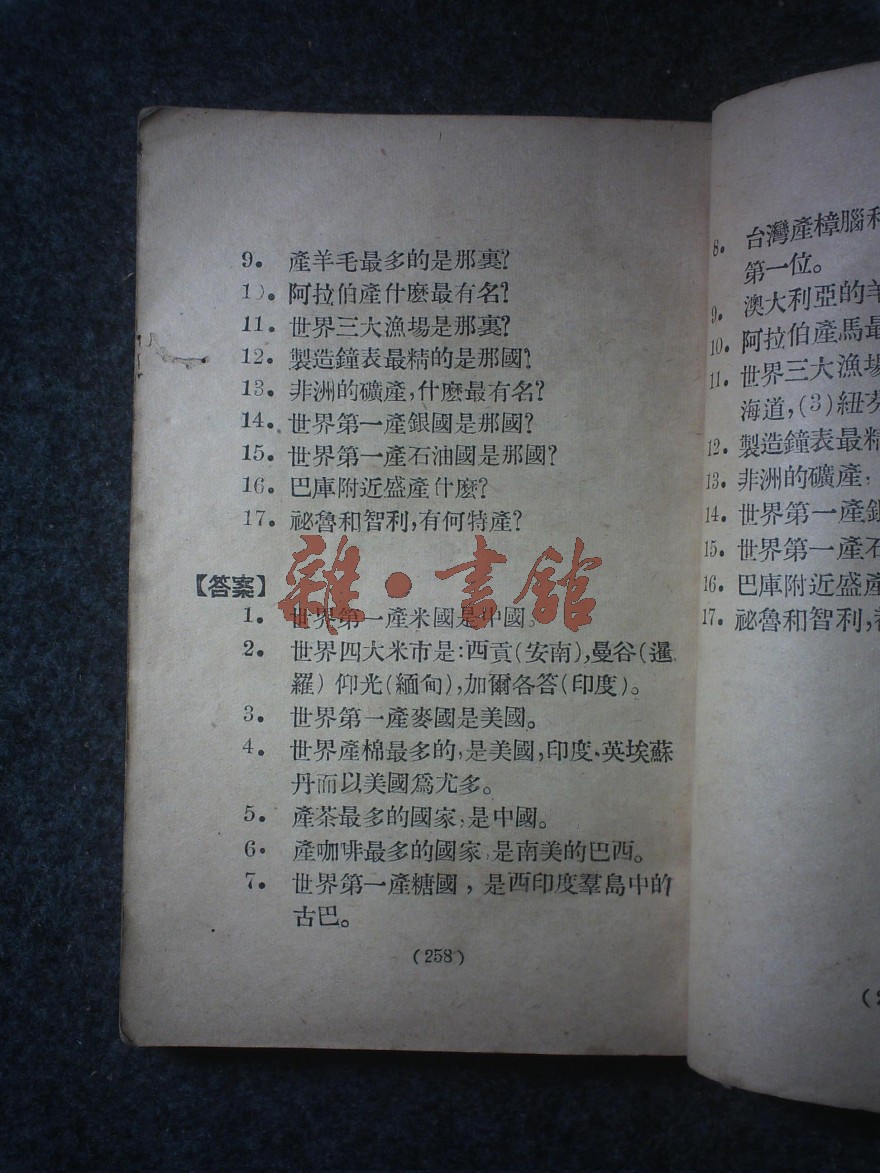 9. 產羊毛最多的是那裏?
10. 阿拉伯產什麽最有名?
11. 世界三大漁場是那裏?
12. 製造鐘表最精的是那國?
13. 非洲的礦產,什麽最有名?
14. 世界第一產銀國是那國?
15. 世界第一產石油國是那國?
16. 巴庫附近盛產什麽?
17. 祕魯和智利,有何特產?
【答案】
1. 世界第一產米國是中國。
2. 世界四大米市是:西貢(安南),曼谷(暹
羅) 仰光(緬甸),加爾各答(印度)。
3. 世界第一產麥國是美國。
4. 世界產棉最多的,是美國,印度、英埃蘇
丹而以美國爲尤多。
5. 產茶最多的國家,是中國。
6. 產咖啡最多的國家,是南美的巴西。
7. 世界第一產糖國,是西印度羣島中的
古巴。
(258)
雜·書館
8. 台灣產樟腦
第一位。
9. 澳大利亞的羊
10. 阿拉伯產馬最
11. 世界三大漁場
海道,(3)紐芬
12. 製造鐘表最精
13. 非洲的礦產,
14. 世界第一產銀
15. 世界第一產石
16. 巴庫附近盛產
17. 祕魯和智利,